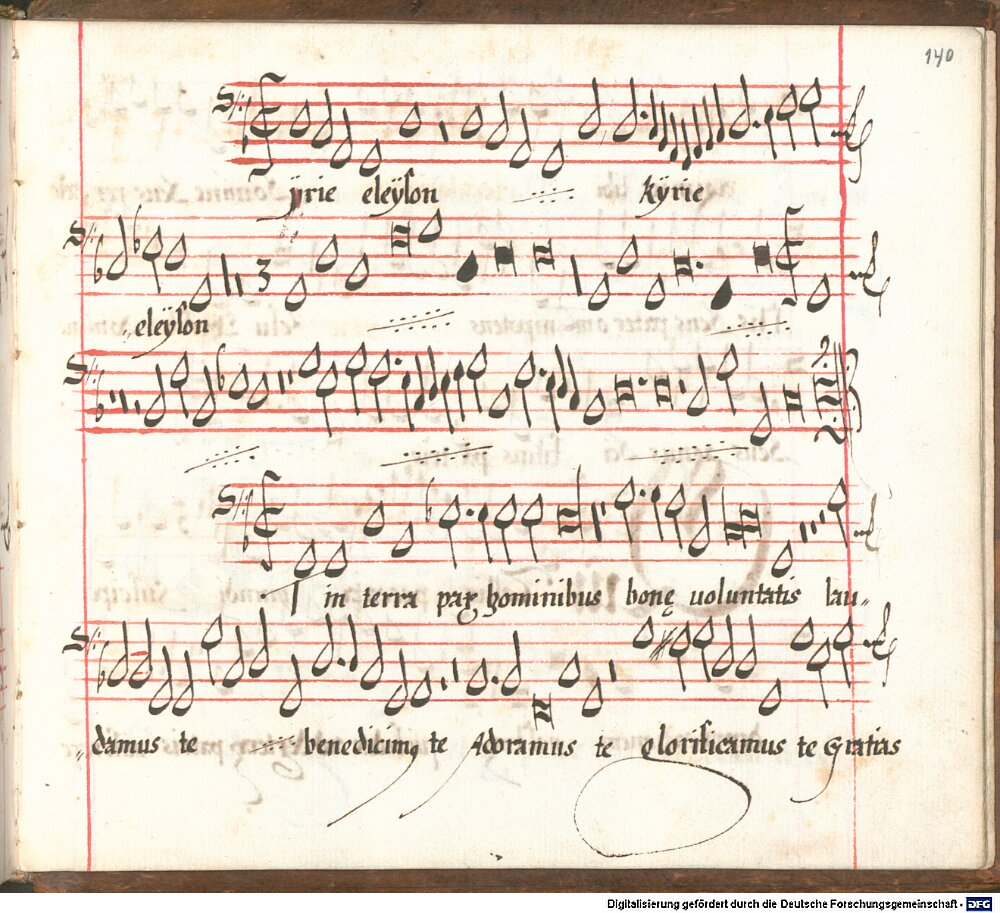 140
ÿrie eleÿson kÿrie
eleÿson
3
in terra pax hominibus bonę uoluntatis lau-
damus te benedicimꝰ te Adoramus te glorificamus te Gratias
Digitalisierung gefördert durch die Deutsche Forschungsgemeinschaft - DFG